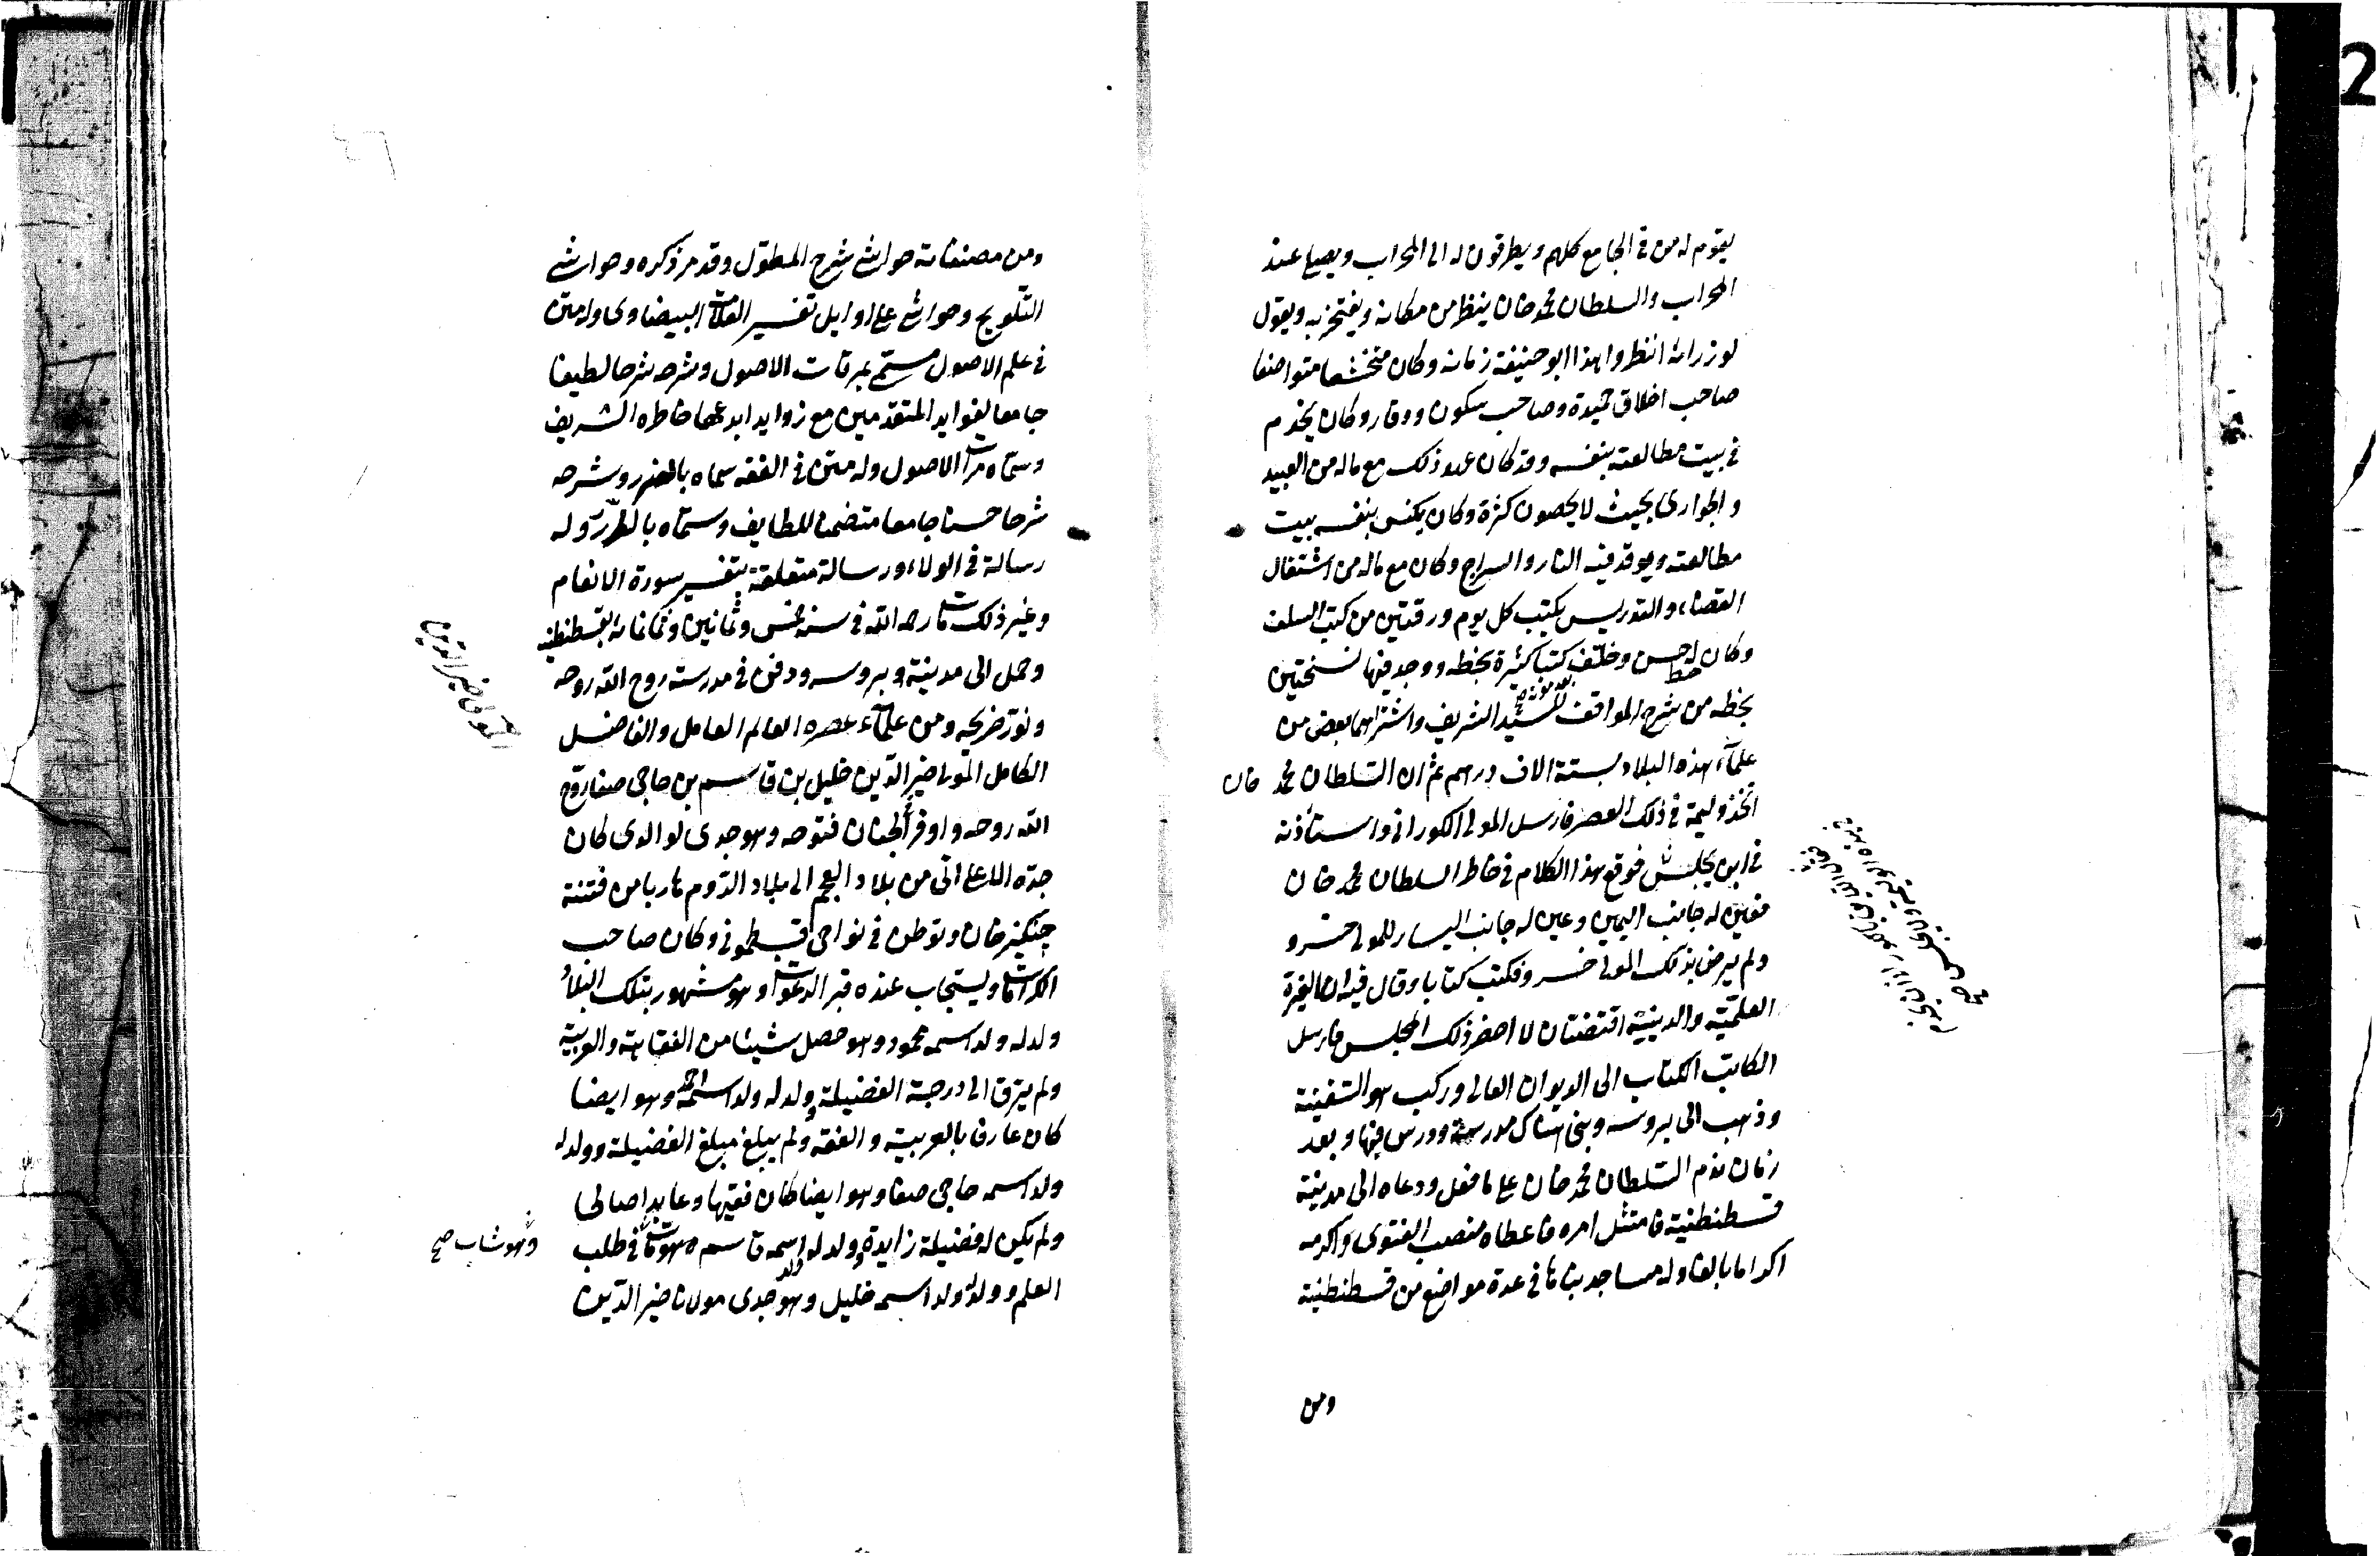 يقوم له من فى الجامع كلهم ويطرقون له الى المحراب ويصلى عند
المحراب والسلطان محمد خان ينظر من مكانه ويفتخر به ويقول
لوزرائه انظروا هذا ابو حنيفة زمانه وكان متخشعا متواضعا
صاحب اخلاق حميدة وصاحب سكون ووقار وكان يخدم
فى بيت مطالعته بنفسه وقد كان عدو ذلك مع ماله من العبيد
والجوارى بحيث لا يحصون كثرة وكان يكنس بنفسه بيت
مطالعته ويوقد فيه النار والسراج وكان مع ماله من اشتغال
القضاء والتدريس يكتب كل يوم ورقتين من كتب السلف
وكان له خط حسن وخلف كتبا كثيرة بخطه ووجد فيها نسختين
بخطه من شرح المواقف للسيد الشريف واشتراهما بعض من
علماء هذه البلاد بستة الاف درهم ثم ان السلطان محمد خان
اتخذ وليمة فى ذلك العصر فارسل المولى الكورانى واستأذنه
فى اين يجلس فوقع هذا الكلام فى خاطر السلطان محمد خان
فعين له جانب اليمين وعين له جانب اليسار للمولى خسرو
ولم يرض بذلك المولى خسرو فكتب كتابا وقال فيه ان الغيرة
العلمية والدينية اقتضتان لا احضر ذلك المجلس فارسل
الكاتب الكتاب الى الديوان العالى وركب هو السفينة
وذهب الى بروسه وبنى هناك مدرسة ودرس فيها وبعد
زمان ندم السلطان محمد خان على ما فعل ودعاه الى مدينة
قسطنطنية فامتثل امره فاعطاه منصب الفتوى واكرمه
اكراما بالغا وله مساجد بناها فى عدة مواضع من قسطنطنية
ومن
ومن مصنفاته حواشى شرح المطول وقد مر ذكره وحواشى
التلويح وحواشى على اوايل تفسير العلامة البيضاوى وله متن
فى علم الاصول مسمى بمرقات الاصول وشرحه شرحا لطيفا
جامعا لفوايد المتقدمين مع زوايد ابدعها خاطره الشريف
وسماه مرات الاصول وله متن فى الفقه سماه بالغرر وشرحه
شرحا حسنا جامعا متضمنا للطايف وسماه بالدرر وله
رسالة فى الولاء ورسالة متعلقة بتفسير سورة الانعام
وغير ذلك مات رحمه الله فى سنة خمس وثمانين وثمانمائة بقسطنطنية
وحمل الى مدينة بروسه ودفن فى مدرسته روح الله روحه
ونور ضريحه ومن علماء عصره العالم العامل والفاضل
الكامل المولى خير الدين خليل بن قاسم بن حاجى صفا روح
الله روحه واوفر فى الجنان فتوحه وهو جدى لوالدى كان
جده الاعلى اتى من بلاد العجم الى بلاد الروم هاربا من فتنة
جنكيز خان وتوطن فى نواحى قسطمونى وكان صاحب
الكرامات ويستجاب عنده قبر الدعوات وهو مشهور بتلك البلاد
ولد له ولد اسمه محمود وهو حصل شيئا من الفقاهة والعربية
ولم يترق الى درجة الفضيلة وولد له ولد اسمه احمد وهو ايضا
كان عارفا بالعربية والفقه ولم يبلغ مبلغ الفضيلة وولد له
ولد اسمه حاجى صفا وهو ايضا كان فقيها وعابدا صالحا
ولم يكن له فضيلة زايدة وولد له ولد اسمه قاسم وهو مات فى طلب
العلم وولد له ولد اسمه خليل وهو جدى مولانا خير الدين
المولى خير الدين
وهو شاب صح